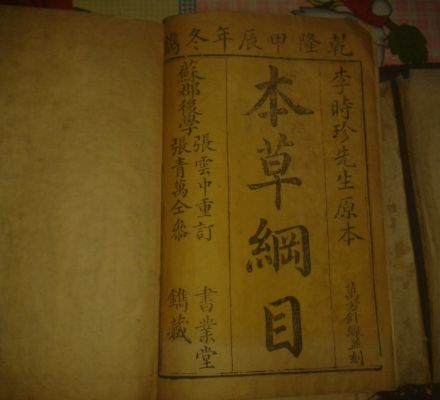 乾隆甲辰年冬鐫
李時珍先生原本
萬方針線
本草綱目
蘇郡後學
張雲中重訂
張青萬仝參
書業堂
鐫藏